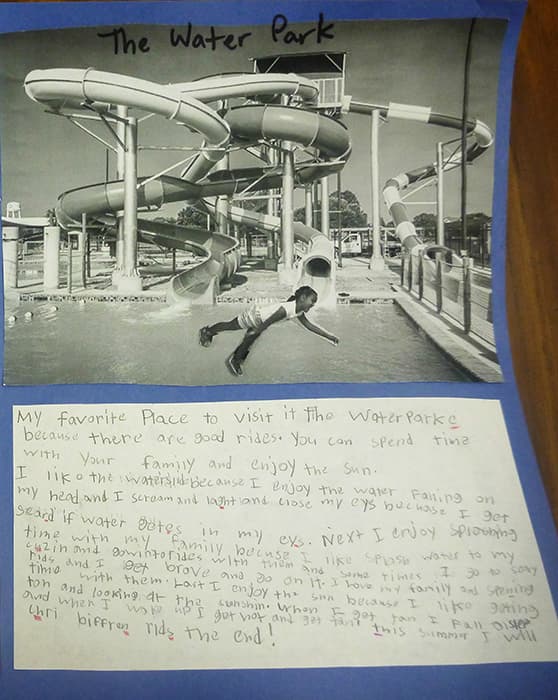 The Water Park
My favorite Place to visit it the WaterParke
because there are good rides. You can spend time
with your family and enjoy the sun.
I like the waterslide because I enjoy the water falling on
my head and I scream and laght and close my eys because I get
seard if water gotes in my eys. Next I enjoy
time with my family becuse I like splash water to my
cuzin and rides with them and some times I go to scay
rids and I get brave and go on it. I have my family and
time with them. Last I enjoy the sun because I like geting
tan and looking at the sunshin. When I get tan I fall
and when I wake up I get hot and get tan! this summer I will
chri biffren rids the end!